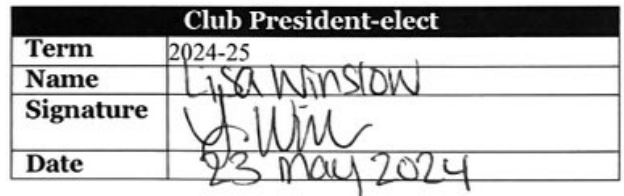 Club President-elect
Term 2024-25
Name Lisa Winslow
Signature L. Win
Date 23 May 2024